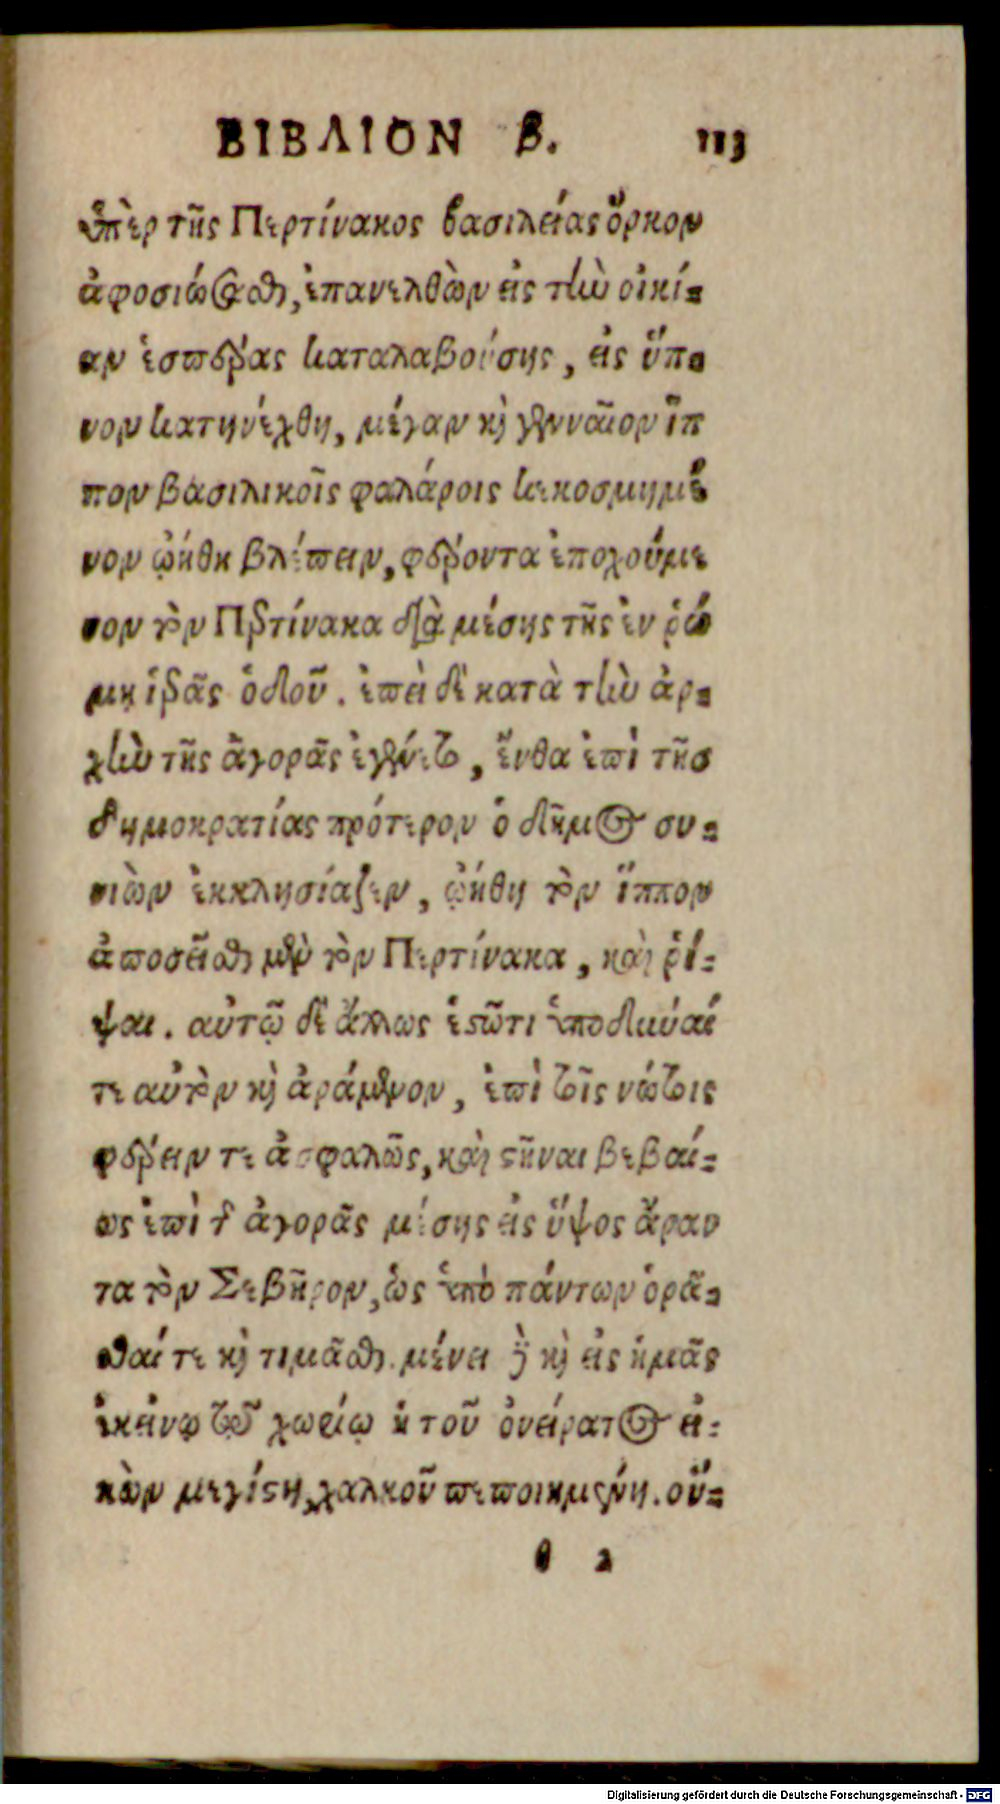 ΒΙΒΛΙΟΝ β. 113
ὑπὲρ τῆς Περτίνακος βασιλείας ὅρκον
ἀφοσιώσασθαι, ἐπανελθὼν εἰς τὴν οἰκί-
αν ἑσπέρας καταλαβούσης, εἰς ὕπ-
νον κατηνέχθη, μέγαν καὶ γενναῖον ἵπ
πον βασιλικοῖς φαλάροις κεκοσμημέ
νον ᾠήθη βλέπειν, φέροντα ἐποχούμε
νον τὸν Περτίνακα διὰ μέσης τῆς ἐν ῥώ
μῃ ἱερᾶς ὁδοῦ. ἐπεὶ δὲ κατὰ τὴν ἀρ-
χὴν τῆς ἀγορᾶς ἐγένετο, ἔνθα ἐπὶ τῆς
δημοκρατίας πρότερον ὁ δῆμος συ-
νιὼν ἐκκλησίαζεν, ᾠήθη τὸν ἵππον
ἀποσείσασθαι μὲν τὸν Περτίνακα, καὶ ῥί-
ψαι. αὐτῷ δὲ ἄλλως ἑστῶτι ὑποδῦναί
τε αὐτὸν καὶ ἀράμενον, ἐπὶ τοῖς νώτοις
φέρειν τε ἀσφαλῶς, καὶ στῆναι βεβαί-
ως ἐπὶ τῆς ἀγορᾶς μέσης εἰς ὕψος ἄραν
τα τὸν Σεβῆρον, ὡς ὑπὸ πάντων ὁρᾶ-
σθαί τε καὶ τιμᾶσθαι. μένει δὲ καὶ εἰς ἡμᾶς
ἐκείνῳ τῷ χωρίῳ ἡ τοῦ ὀνείρατος εἰ-
κὼν μεγίστη, χαλκοῦ πεποιημένη. οὕ-
θ 2
Digitalisierung gefördert durch die Deutsche Forschungsgemeinschaft - DFG